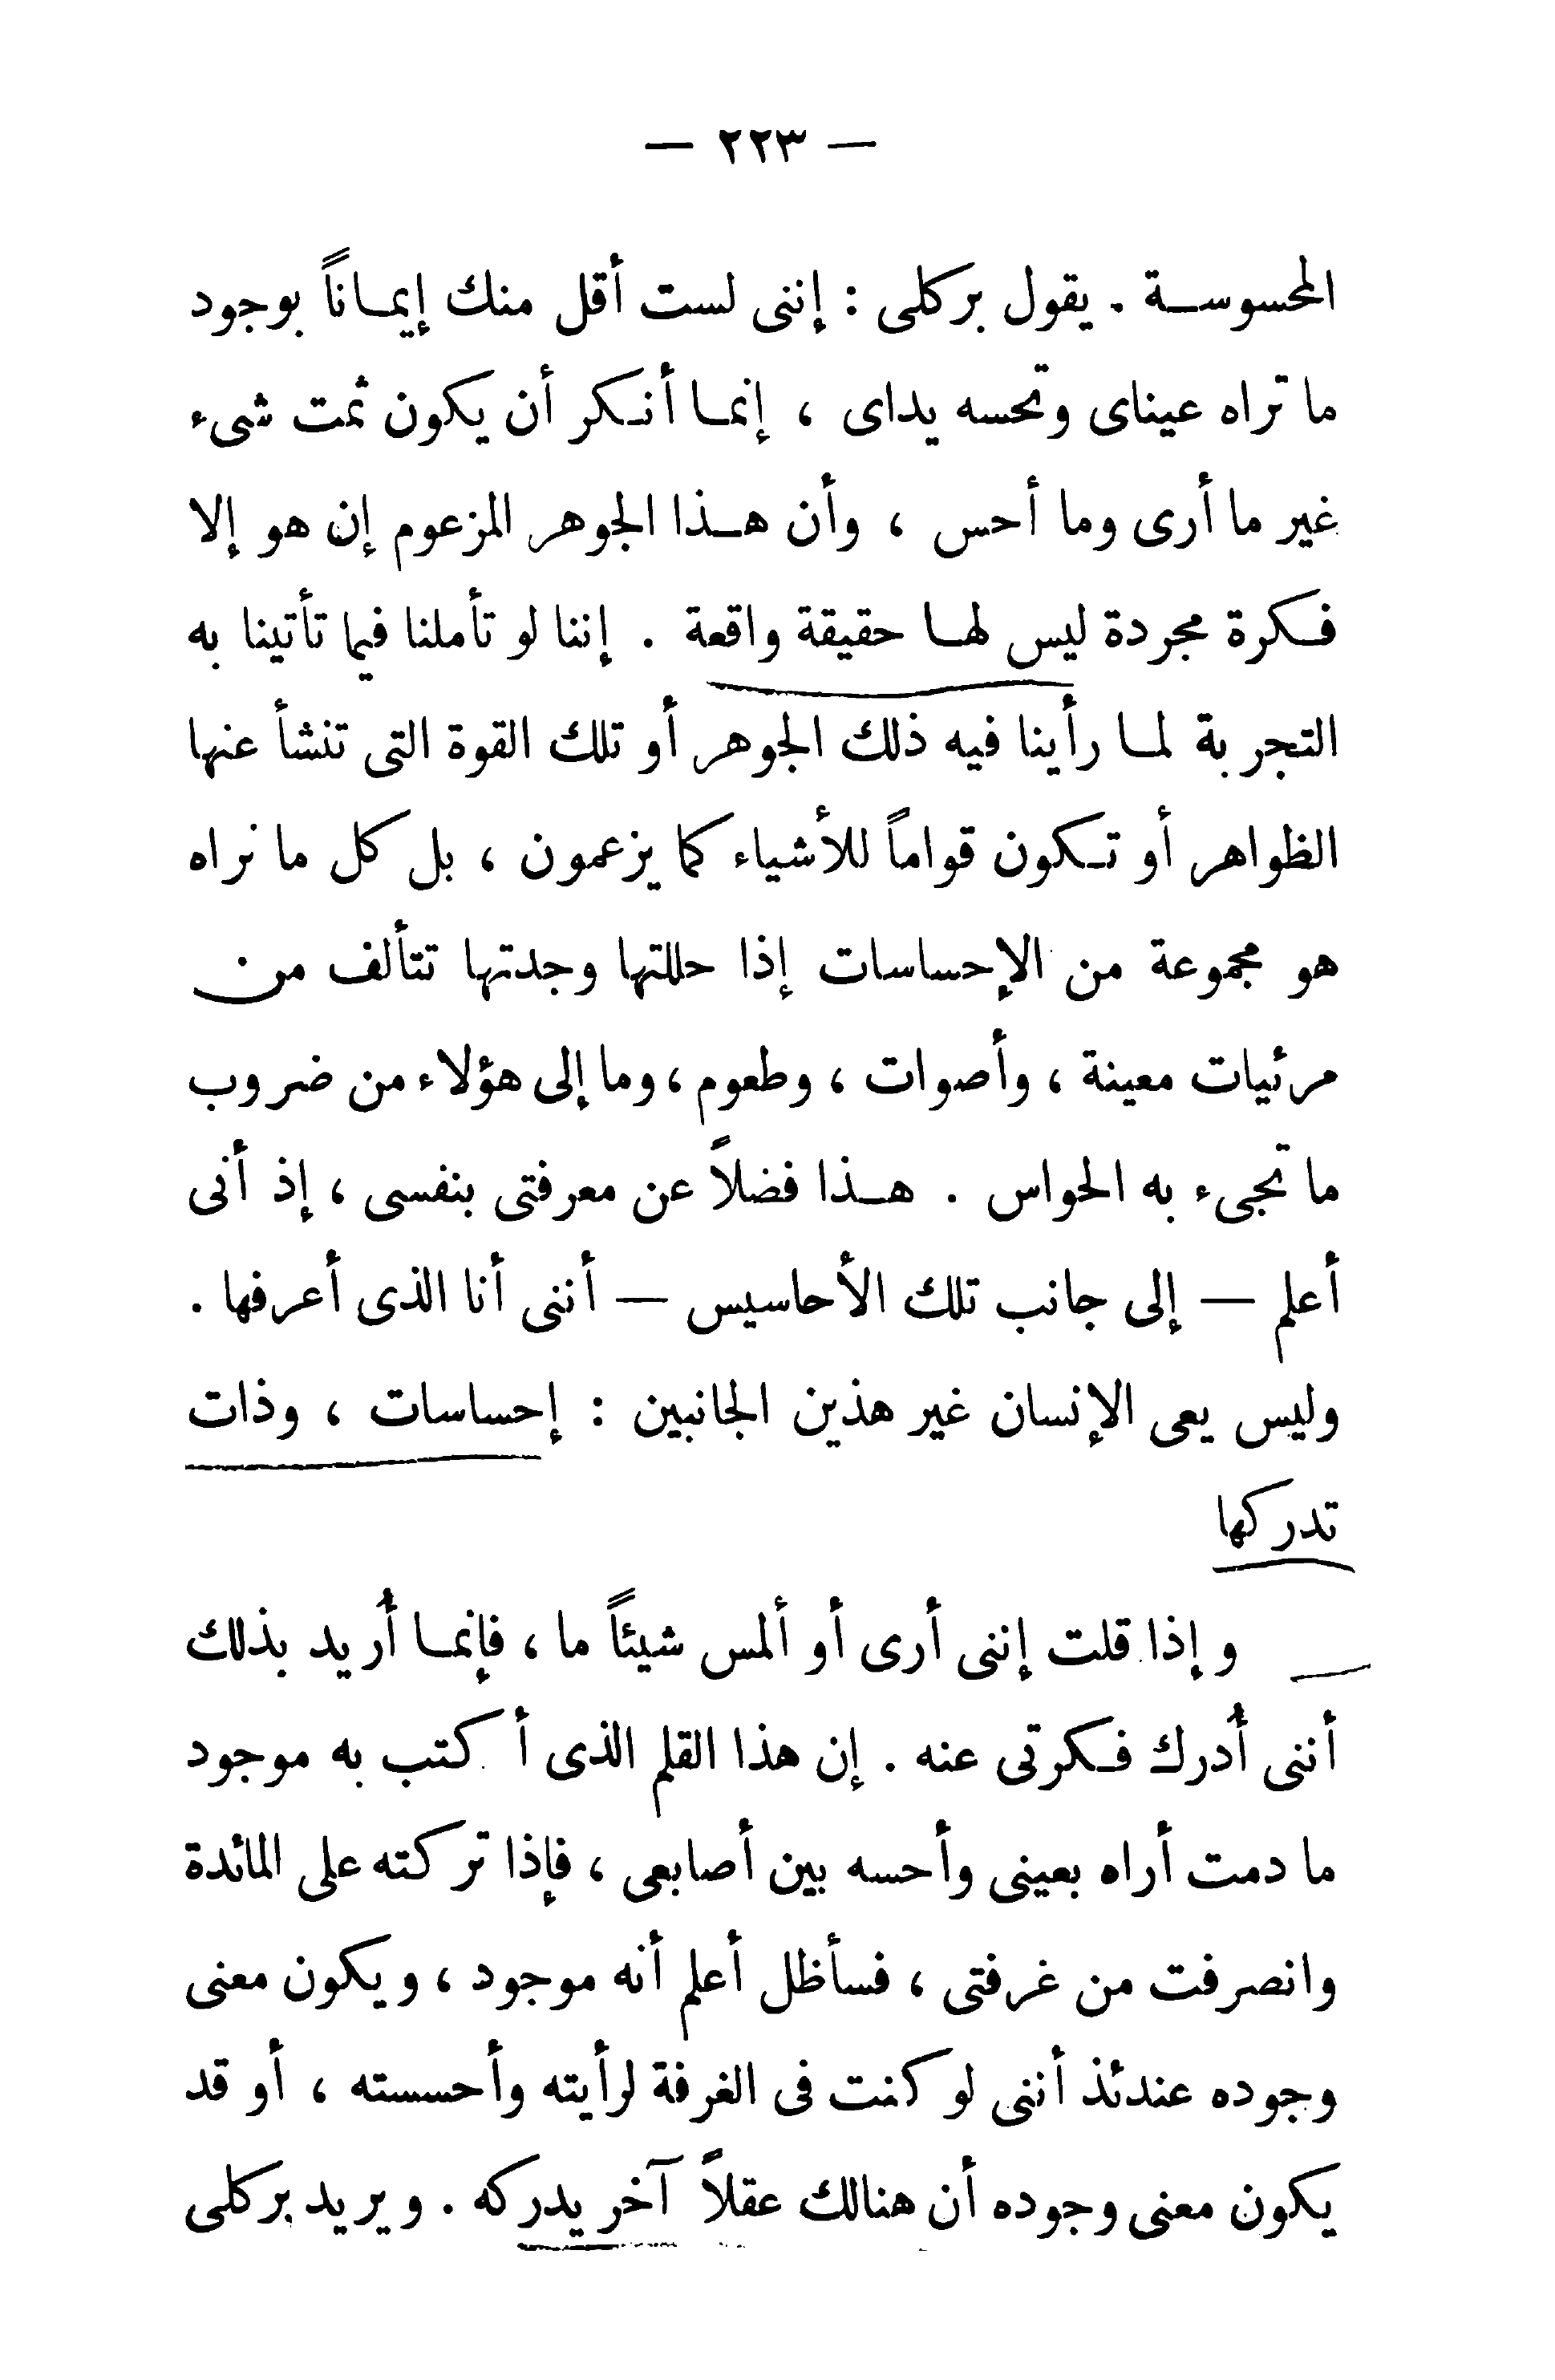 — ٢٢٣ —
المحسوسة . يقول بركلى : إننى لست أقل منك إيماناً بوجود
ما تراه عيناى وتحسه يداى ، إنما أنكر أن يكون ثمت شىء
غير ما أرى وما أحس ، وأن هذا الجوهر المزعوم إن هو إلا
فكرة مجردة ليس لها حقيقة واقعة . إننا لو تأملنا فيما تأتينا به
التجربة لما رأينا فيه ذلك الجوهر أو تلك القوة التى تنشأ عنها
الظواهر أو تكون قواماً للأشياء كما يزعمون ، بل كل ما نراه
هو مجموعة من الإحساسات إذا حللتها وجدتها تتألف من
مرئيات معينة ، وأصوات ، وطعوم ، وما إلى هؤلاء من ضروب
ما تجىء به الحواس . هذا فضلاً عن معرفتى بنفسى ، إذ أنى
أعلم — إلى جانب تلك الأحاسيس — أننى أنا الذى أعرفها .
وليس يعى الإنسان غير هذين الجانبين : إحساسات ، وذات
تدركها
وإذا قلت إننى أرى أو ألمس شيئاً ما ، فإنما أُريد بذلك
أننى أُدرك فكرتى عنه . إن هذا القلم الذى أكتب به موجود
ما دمت أراه بعينى وأحسه بين أصابعى ، فإذا تركته على المائدة
وانصرفت من غرفتى ، فسأظل أعلم أنه موجود ، ويكون معنى
وجوده عندئذ أننى لو كنت فى الغرفة لرأيته وأحسسته ، أو قد
يكون معنى وجوده أن هنالك عقلاً آخر يدركه . ويريد بركلى